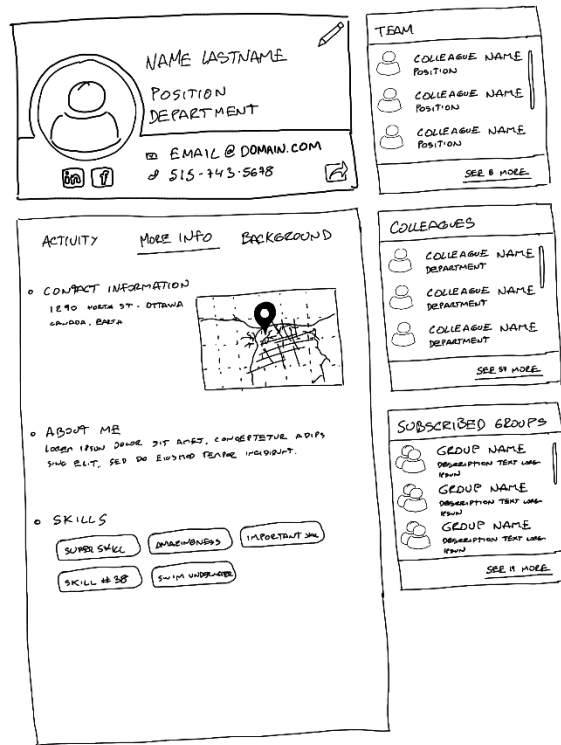 NAME LASTNAME
POSITION
DEPARTMENT
EMAIL@DOMAIN.COM
515-743-5678
in f
ACTIVITY MORE INFO BACKGROUND
CONTACT INFORMATION
1290 NORTH ST. OTTAWA
CANADA, EARTH
ABOUT ME
LOREM IPSUM DOLOR SIT AMET, CONSECTETUR ADIPS
SING ELIT, SED DO EIUSMOD TEMPOR INCIDIDUNT.
SKILLS
SUPER SKILL AMAZINGNESS IMPORTANT
SKILL #38 SWIM UNDERWATER
TEAM
COLLEAGUE NAME
POSITION
COLLEAGUE NAME
POSITION
COLLEAGUE NAME
POSITION
SEE 8 MORE
COLLEAGUES
COLLEAGUE NAME
DEPARTMENT
COLLEAGUE NAME
DEPARTMENT
COLLEAGUE NAME
DEPARTMENT
SEE 54 MORE
SUBSCRIBED GROUPS
GROUP NAME
DESCRIPTION TEXT LORE
IPSUM
GROUP NAME
DESCRIPTION TEXT LORE
IPSUM
GROUP NAME
DESCRIPTION TEXT LORE
IPSUM
SEE 11 MORE